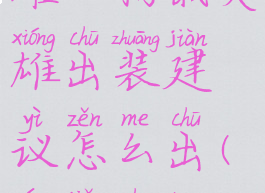 xióng chū zhuāng jiàn
雄出装建
yì zěn me chū
议怎么出(